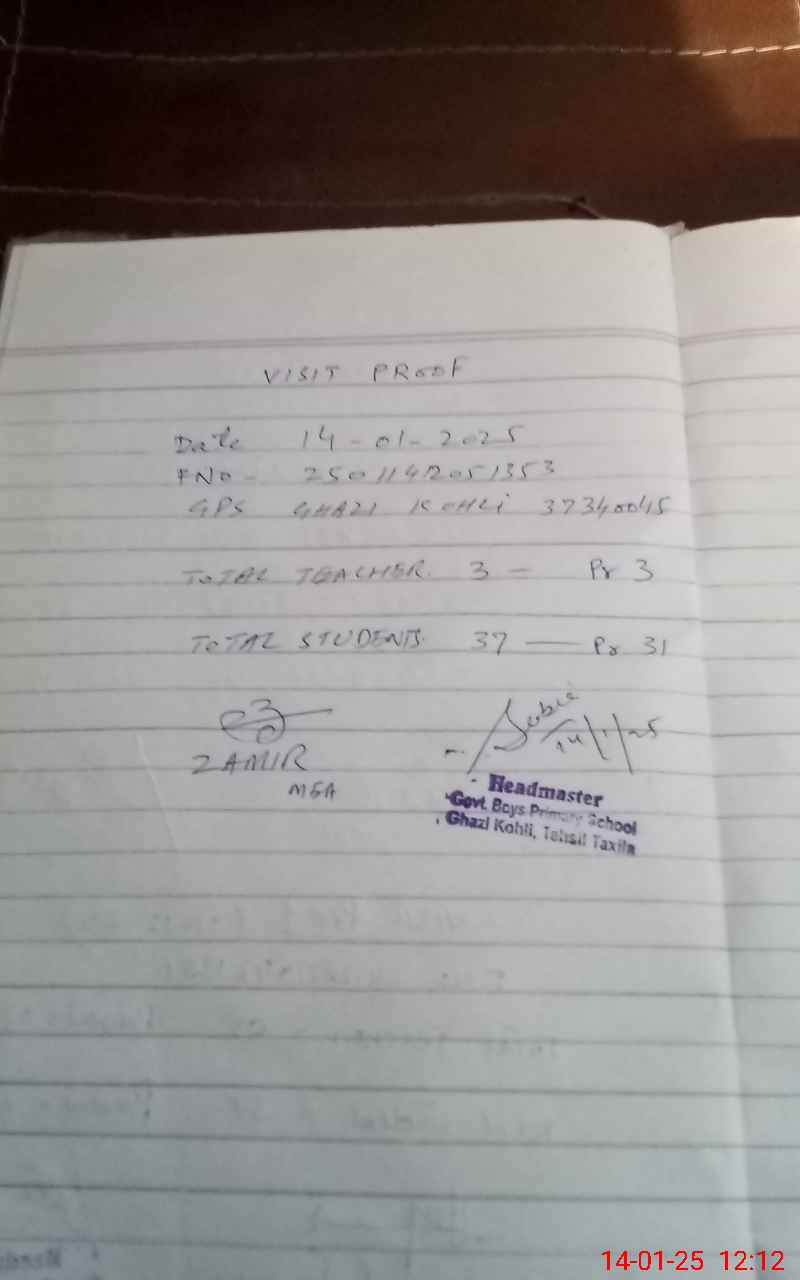 VISIT PROOF
Date 14-01-2025
FNO - 2501142051353
GPS GHAZI KOHLI 37340045
TOTAL TEACHER. 3 — Pr 3
TOTAL STUDENTS. 37 — Pr 31
14/1/25
ZAMIR
MEA
Headmaster
Govt. Boys Primary School
Ghazi Kohli, Tehsil Taxila
14-01-25 12:12